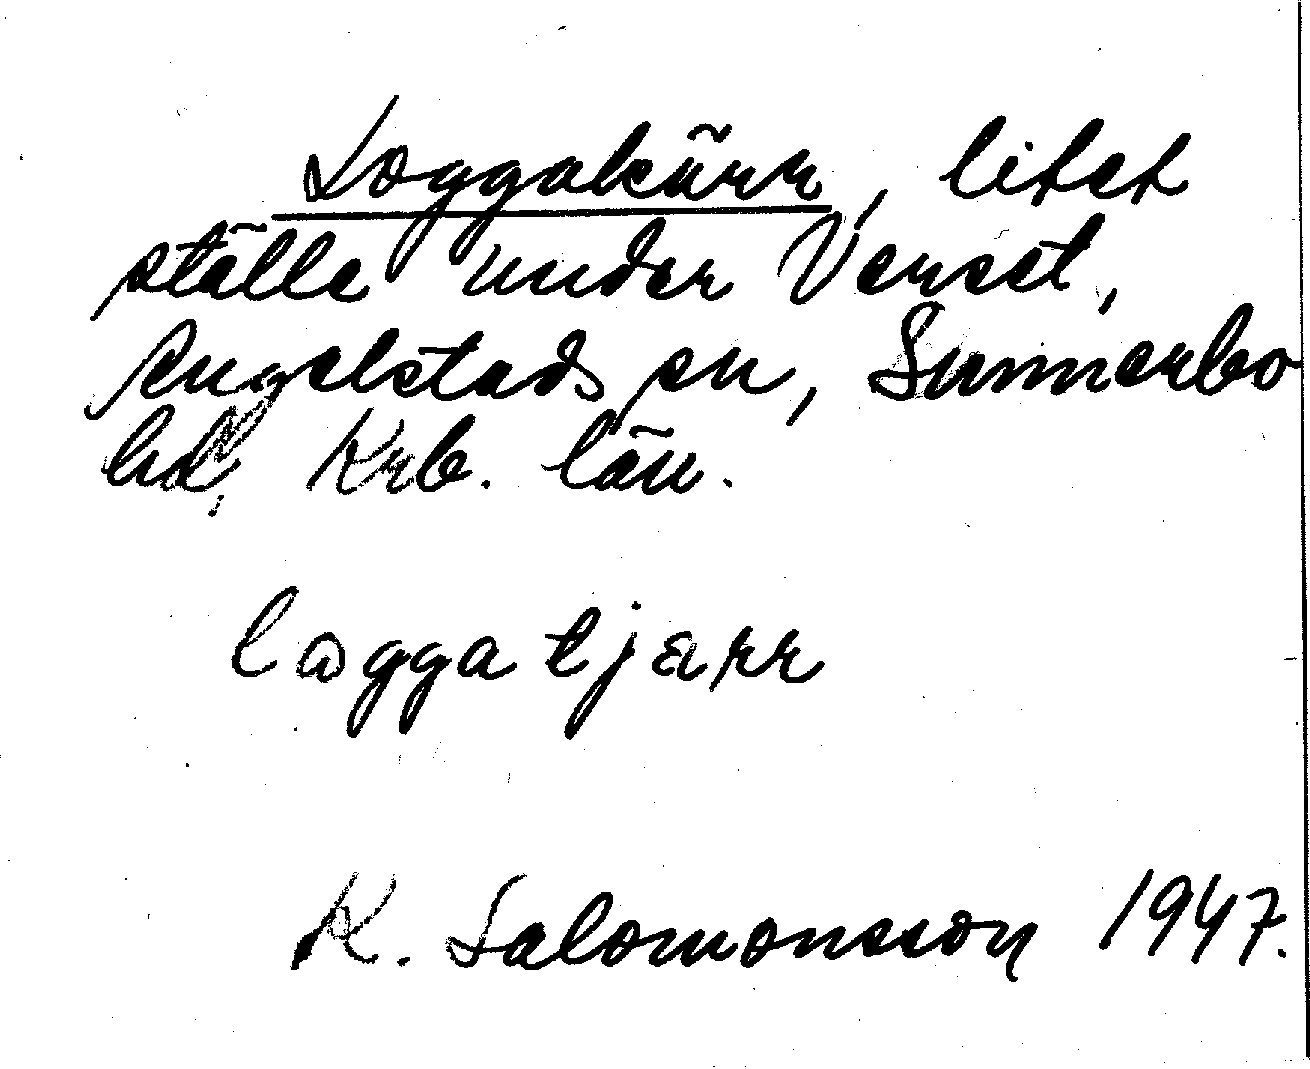 Loggakärr, litet
ställe under Verset,
Angelstads sn, Sunnerbo
hd, Krb. län.
loggatjærr
K. Salomonsson 1947.